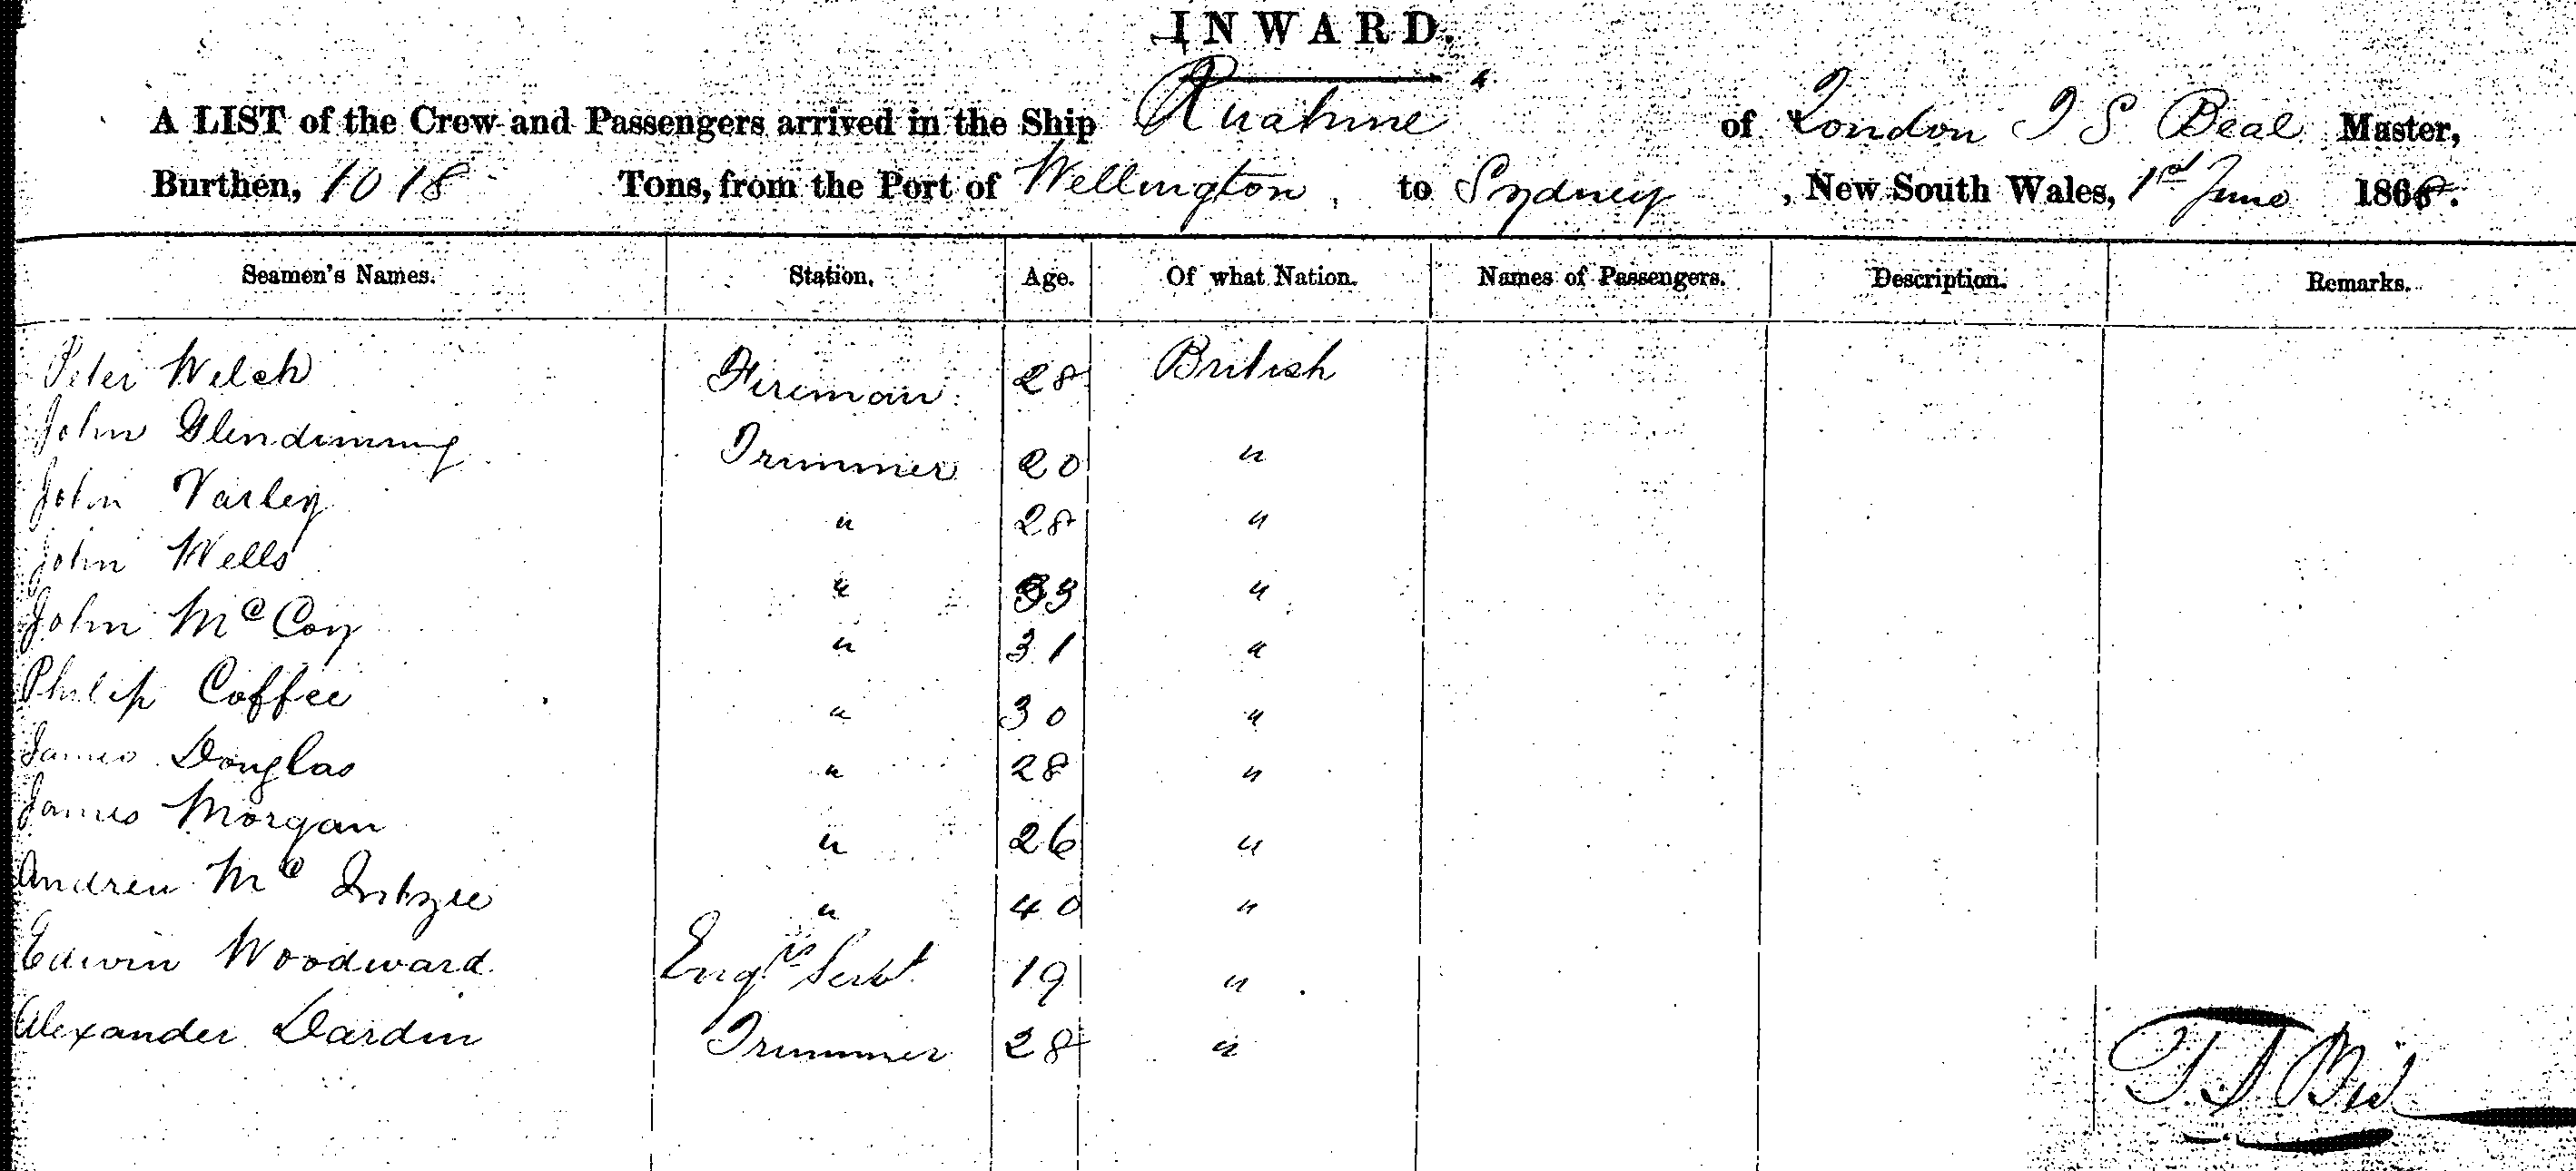 INWARD.
A LIST of the Crew and Passengers arrived in the Ship Ruahine " of London J S Beal Master,
Burthen, 1018 Tons, from the Port of Wellington, to Sydney, New South Wales, 1st June 1868.
Seamen's Names. Station. Age. Of what Nation. Names of Passengers. Description. Remarks.
Peter Welch Fireman 28 British
John Glendinning Trimmer 20 "
John Varley " 28 "
John Wells " 33 "
John McCoy " 31 "
Philip Coffee " 30 "
James Douglas " 28 "
James Morgan " 26 "
Andrew Mc " 40 "
Edwin Woodward Engrs Servt 19 "
Alexander Dardin Trimmer 28 "